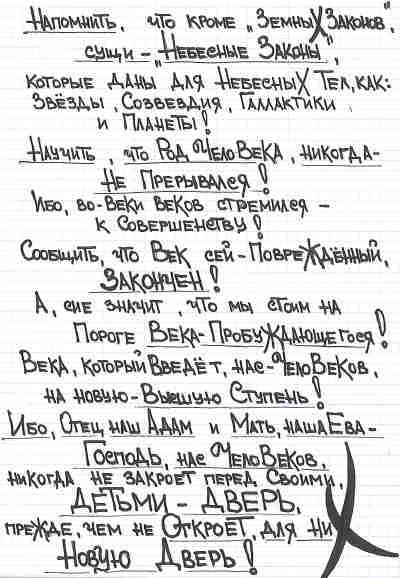 Напомнить, что кроме „Земных Законов",
сущи – „Небесные Законы",
которые даны для Небесных Тел, как:
Звёзды, Созвездия, Галактики
и Планеты!
Научить, что Род ЧелоВека, никогда-
не Прерывался!
Ибо, во-веки веков стремился –
к Совершенству!
Сообщить, что Век сей-Повреждённый,
Закончен!
А, сие значит, что мы стоим на
Пороге Века-Пробуждающегося!
Века, который Введёт, нас-ЧелоВеков,
на новую-Высшую Ступень!
Ибо, Отец наш Адам и Мать, наша Ева-
Господь, нас ЧелоВеков,
никогда не закроет перед Своими,
Детьми - Дверь,
прежде, чем не Откроет, для них
Новую Дверь!